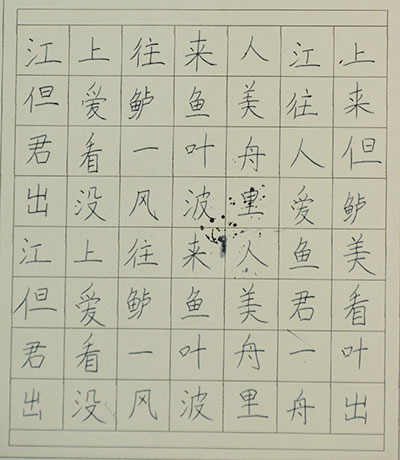 江上往来人江上
但爱鲈鱼美往来
君看一叶舟人但
出没风波里爱鲈
江上往来人鱼美
但爱鲈鱼美君看
君看一叶舟一叶
出没风波里舟出